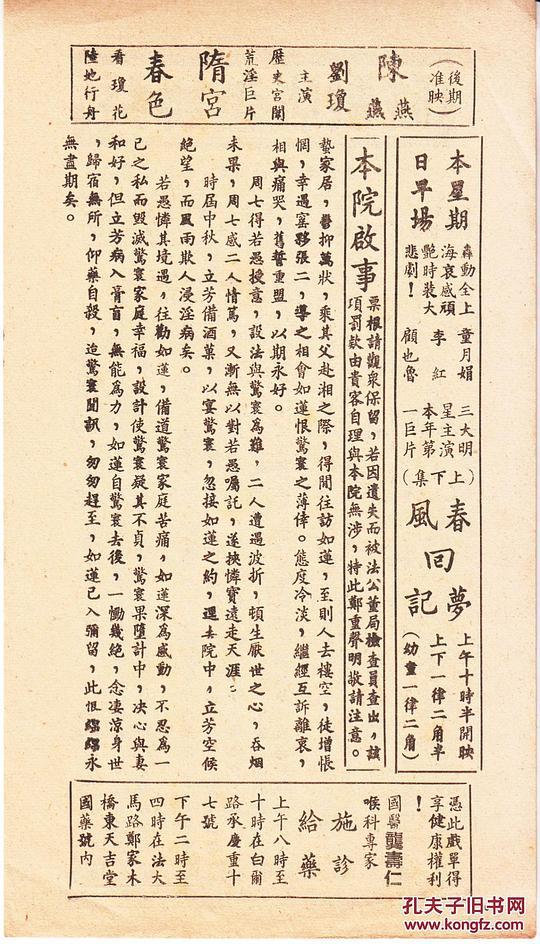 （後期准映）
陳燕燕
劉瓊
主演
歷史宮闈
荒淫巨片
隋宮
春色
看瓊花
陸地行舟
本星期
日早場
轟動全上
海哀感頑
艷時裝大
悲劇！
童月娟
李紅
顧也魯
三大明
星主演
本年第
一巨片
（上下集）
春風回夢記
上午十時半開映
上下一律二角半
（幼童一律二角）
本院啟事
票根請觀衆保留，若因遺失而被法公董局檢查員查出，該
項罰欵由貴客自理與本院無涉，特此鄭重聲明敬請注意。
蟄家居，鬱抑萬狀，乘其父赴湘之際，得閒往訪如蓮，至則人去樓空，徒增悵
惘，幸遇窰夥張二，導之相會如蓮恨驚寰之薄倖。態度冷淡，繼經互訴離衷，
相與痛哭，舊誓重盟，以期永好。
周七得若愚授意，設法與驚寰為難，二人遭遇波折，頓生厭世之心，吞烟
未果，周七感二人情篤，又漸無以對若愚囑託，遂挾憐寶遠走天涯：
時屆中秋，立芳備酒菓，以宴驚寰，忽接如蓮之約，逕去院中，立芳空候
絕望，而風雨欺人浸淫病矣。
若愚憐其境遇，往勸如蓮，備道驚寰家庭苦痛，如蓮深為感動，不忍為一
己之私而毀滅驚寰家庭幸福，設計使驚寰疑其不貞，驚寰果墮計中，决心與妻
和好，但立芳病入膏肓，無能為力，如蓮自驚寰去後，一慟幾絕，念凄涼身世
，歸宿無所，仰藥自殺，迨驚寰聞訊，匆匆趕至，如蓮已入彌留，此恨綿綿永
無盡期矣。
憑此戲單得
享健康權利
！
國醫龔壽仁
喉科專家
施診
給藥
上午八時至
十時在白爾
路承慶重十
七號
下午二時至
四時在法大
馬路鄭家木
橋東天吉堂
國藥號內
孔夫子旧书网
www.kongfz.com